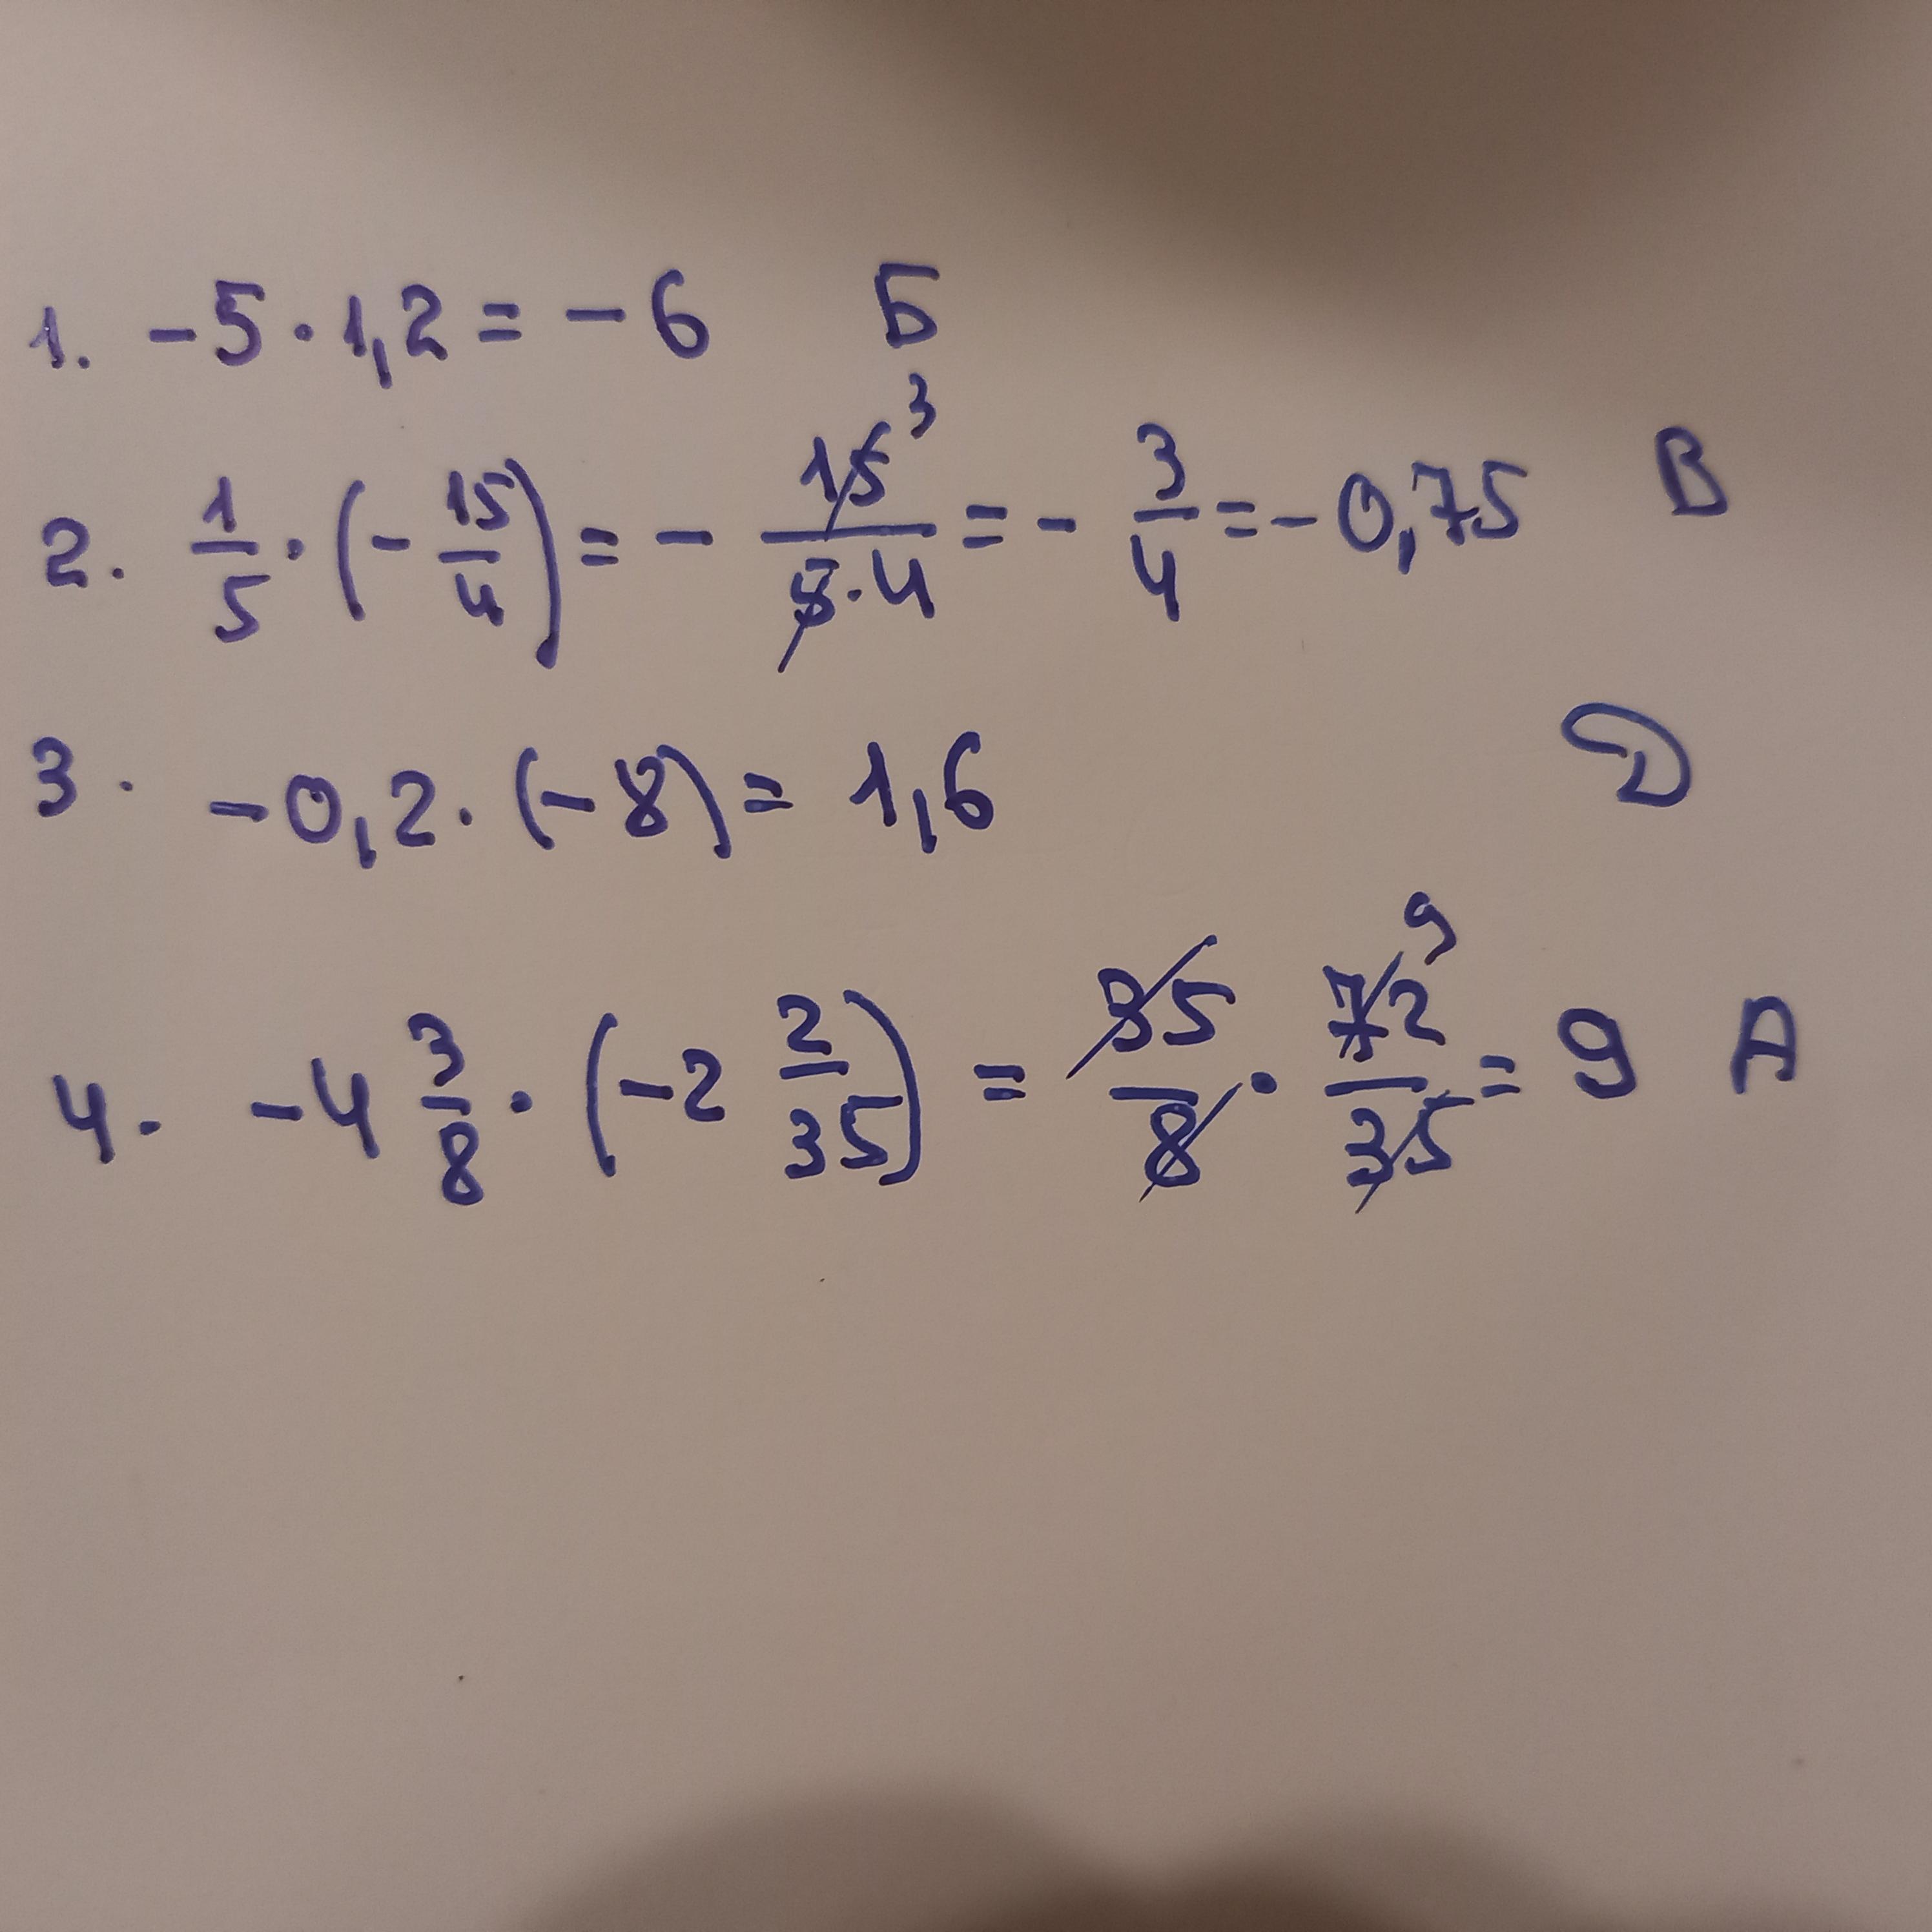 1. -5·1,2 = -6 Б
2. 1/5 · (-15/4) = - 15³/5·4 = - 3/4 = -0,75 В
3. -0,2·(-8) = 1,6 D
4. -4 3/8 · (-2 2/35) = 35/8 · 72⁹/35 = 9 А